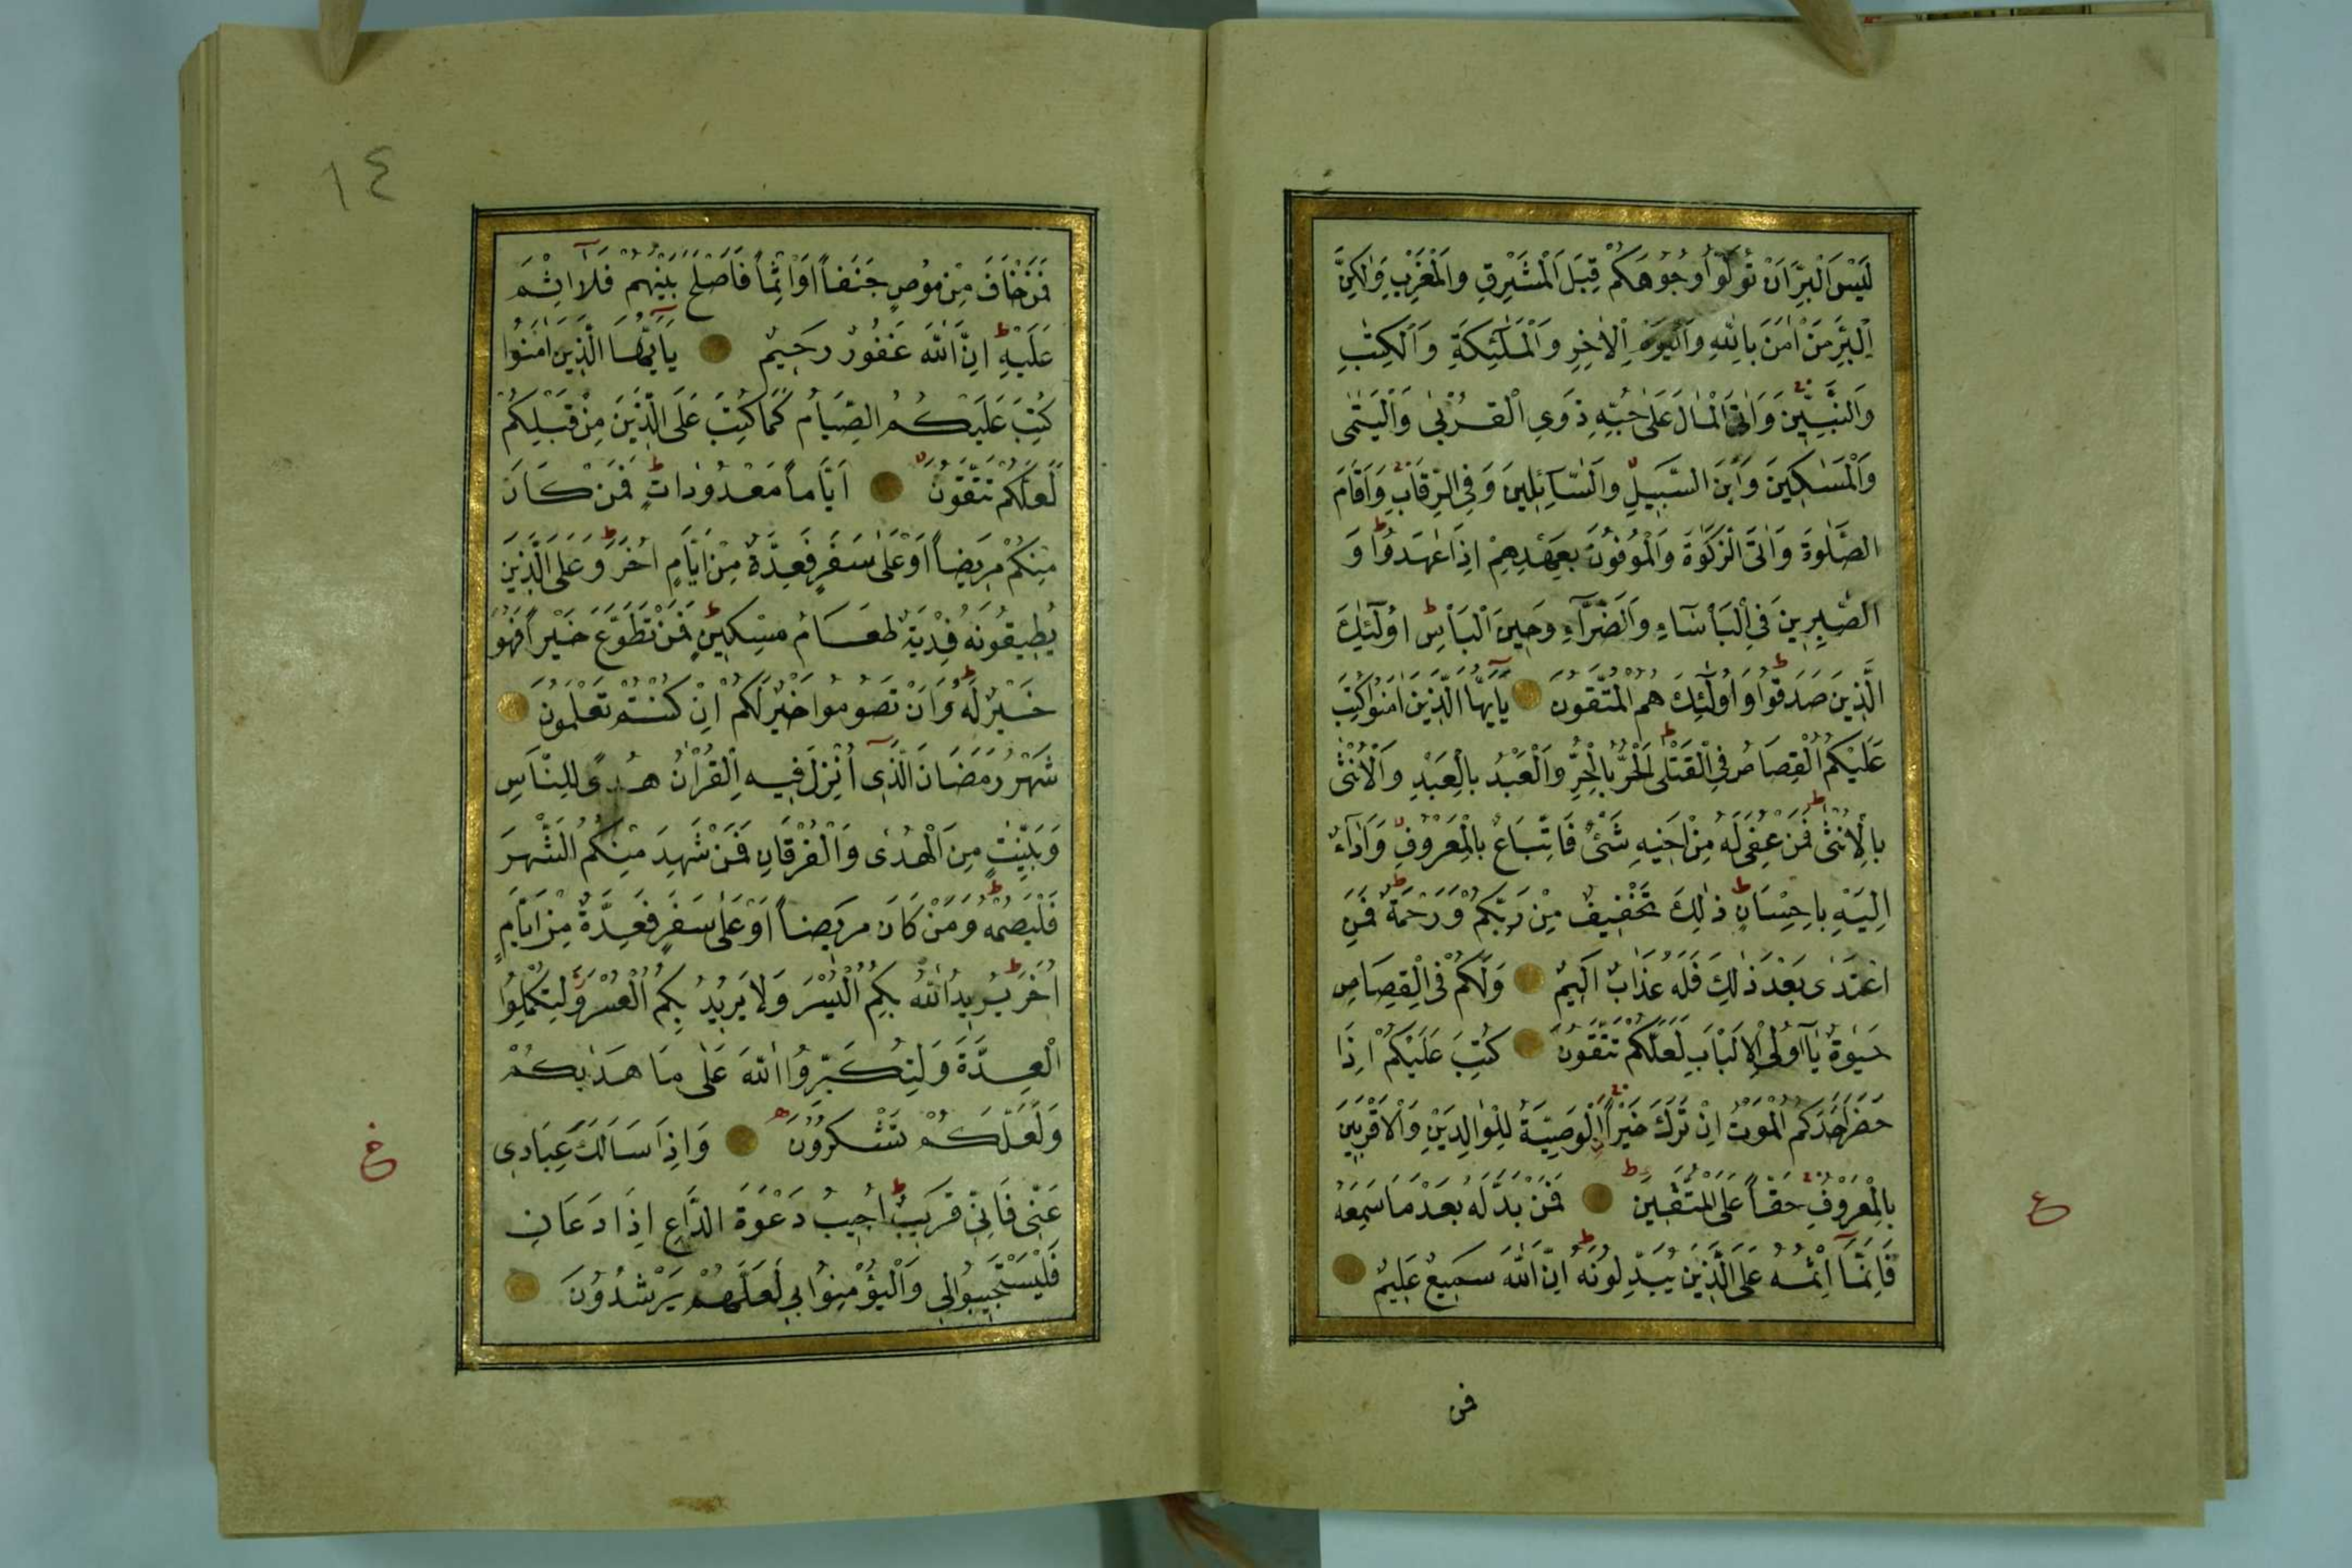 لَيْسَ الْبِرَّ اَنْ تُوَلُّوا وُجُوهَكُمْ قِبَلَ الْمَشْرِقِ وَالْمَغْرِبِ وَلٰكِنَّ
الْبِرَّ مَنْ اٰمَنَ بِاللّٰهِ وَالْيَوْمِ الْاٰخِرِ وَالْمَلٰٓئِكَةِ وَالْكِتٰبِ
وَالنَّبِيّٖنَ وَاٰتَى الْمَالَ عَلٰى حُبِّهٖ ذَوِي الْقُرْبٰى وَالْيَتٰمٰى
وَالْمَسَاكِينَ وَابْنَ السَّبِيلِ وَالسَّآئِلِينَ وَفِي الرِّقَابِ وَاَقَامَ
الصَّلٰوةَ وَاٰتَى الزَّكٰوةَ وَالْمُوفُونَ بِعَهْدِهِمْ اِذَا عٰهَدُوا وَ
الصّٰبِرِينَ فِي الْبَأْسَآءِ وَالضَّرَّآءِ وَحِينَ الْبَأْسِ اُولٰٓئِكَ
الَّذِينَ صَدَقُوا وَاُولٰٓئِكَ هُمُ الْمُتَّقُونَ يَآ اَيُّهَا الَّذِينَ اٰمَنُوا كُتِبَ
عَلَيْكُمُ الْقِصَاصُ فِي الْقَتْلٰى اَلْحُرُّ بِالْحُرِّ وَالْعَبْدُ بِالْعَبْدِ وَالْاُنْثٰى
بِالْاُنْثٰى فَمَنْ عُفِيَ لَهُ مِنْ اَخِيهِ شَيْءٌ فَاتِّبَاعٌ بِالْمَعْرُوفِ وَاَدَآءٌ
اِلَيْهِ بِاِحْسَانٍ ذٰلِكَ تَخْفِيفٌ مِنْ رَبِّكُمْ وَرَحْمَةٌ فَمَنِ
اعْتَدٰى بَعْدَ ذٰلِكَ فَلَهُ عَذَابٌ اَلِيمٌ وَلَكُمْ فِي الْقِصَاصِ
حَيٰوةٌ يَآ اُولِي الْاَلْبَابِ لَعَلَّكُمْ تَتَّقُونَ كُتِبَ عَلَيْكُمْ اِذَا
حَضَرَ اَحَدَكُمُ الْمَوْتُ اِنْ تَرَكَ خَيْرًا الْوَصِيَّةُ لِلْوَالِدَيْنِ وَالْاَقْرَبِينَ
بِالْمَعْرُوفِ حَقًّا عَلَى الْمُتَّقِينَ فَمَنْ بَدَّلَهُ بَعْدَ مَا سَمِعَهُ
ع
فَاِنَّمَآ اِثْمُهُ عَلَى الَّذِينَ يُبَدِّلُونَهُ اِنَّ اللّٰهَ سَمِيعٌ عَلِيمٌ
فمن
١٤
فَمَنْ خَافَ مِنْ مُوصٍ جَنَفًا اَوْ اِثْمًا فَاَصْلَحَ بَيْنَهُمْ فَلَآ اِثْمَ
عَلَيْهِ اِنَّ اللّٰهَ غَفُورٌ رَحِيمٌ يَآ اَيُّهَا الَّذِينَ اٰمَنُوا
كُتِبَ عَلَيْكُمُ الصِّيَامُ كَمَا كُتِبَ عَلَى الَّذِينَ مِنْ قَبْلِكُمْ
لَعَلَّكُمْ تَتَّقُونَ اَيَّامًا مَعْدُودَاتٍ فَمَنْ كَانَ
مِنْكُمْ مَرِيضًا اَوْ عَلٰى سَفَرٍ فَعِدَّةٌ مِنْ اَيَّامٍ اُخَرَ وَعَلَى الَّذِينَ
يُطِيقُونَهُ فِدْيَةٌ طَعَامُ مِسْكِينٍ فَمَنْ تَطَوَّعَ خَيْرًا فَهُوَ
خَيْرٌ لَهُ وَاَنْ تَصُومُوا خَيْرٌ لَكُمْ اِنْ كُنْتُمْ تَعْلَمُونَ
شَهْرُ رَمَضَانَ الَّذِٓي اُنْزِلَ فِيهِ الْقُرْاٰنُ هُدًى لِلنَّاسِ
وَبَيِّنٰتٍ مِنَ الْهُدٰى وَالْفُرْقَانِ فَمَنْ شَهِدَ مِنْكُمُ الشَّهْرَ
فَلْيَصُمْهُ وَمَنْ كَانَ مَرِيضًا اَوْ عَلٰى سَفَرٍ فَعِدَّةٌ مِنْ اَيَّامٍ
اُخَرَ يُرِيدُ اللّٰهُ بِكُمُ الْيُسْرَ وَلَا يُرِيدُ بِكُمُ الْعُسْرَ وَلِتُكْمِلُوا
الْعِدَّةَ وَلِتُكَبِّرُوا اللّٰهَ عَلٰى مَا هَدٰيكُمْ
وَلَعَلَّكُمْ تَشْكُرُونَ وَاِذَا سَاَلَكَ عِبَادِي
خ
عَنِّي فَاِنِّي قَرِيبٌ اُجِيبُ دَعْوَةَ الدَّاعِ اِذَا دَعَانِ
فَلْيَسْتَجِيبُوا لِي وَالْيُؤْمِنُوا بِي لَعَلَّهُمْ يَرْشُدُونَ